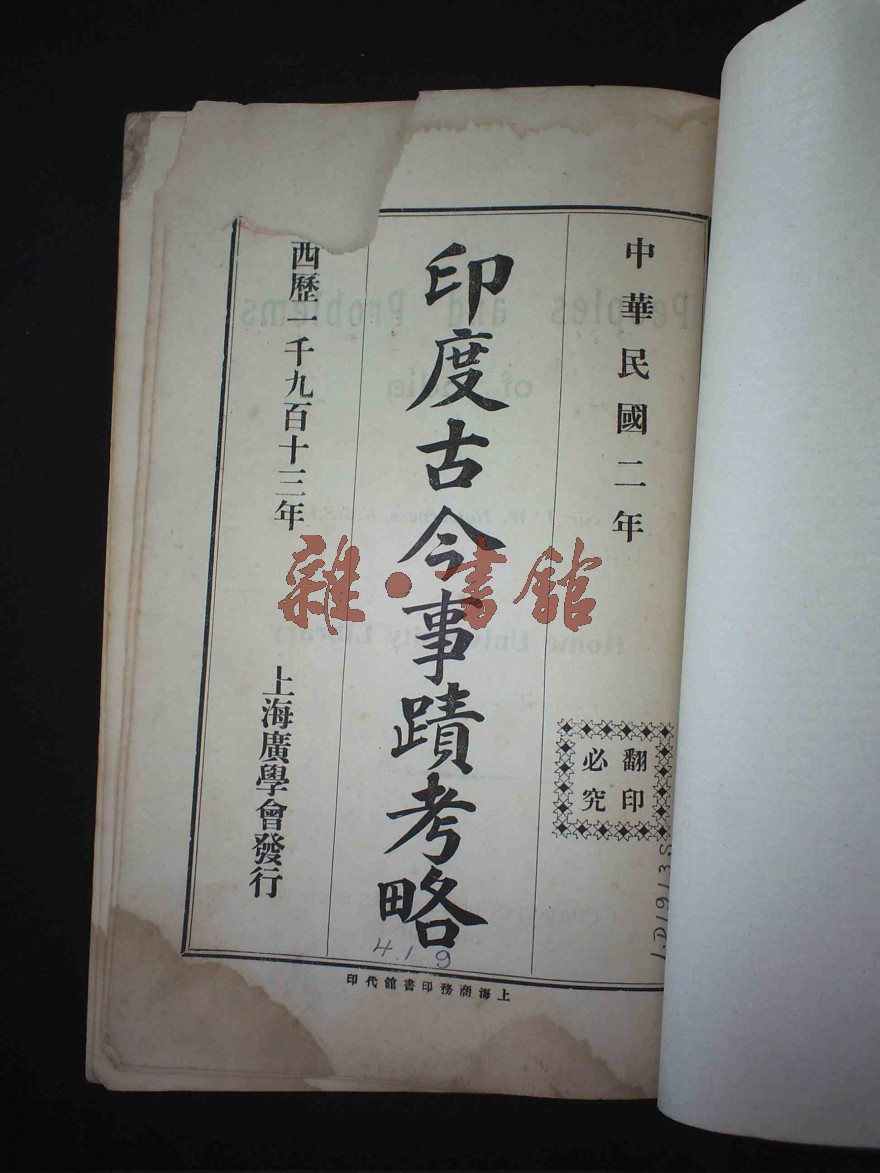 中華民國二年
翻印
必究
印度古今事蹟考略
西歷一千九百十三年
上海廣學會發行
上海商務印書館代印
419
雜·書館
Peoples and Problems
of India
Home University Library